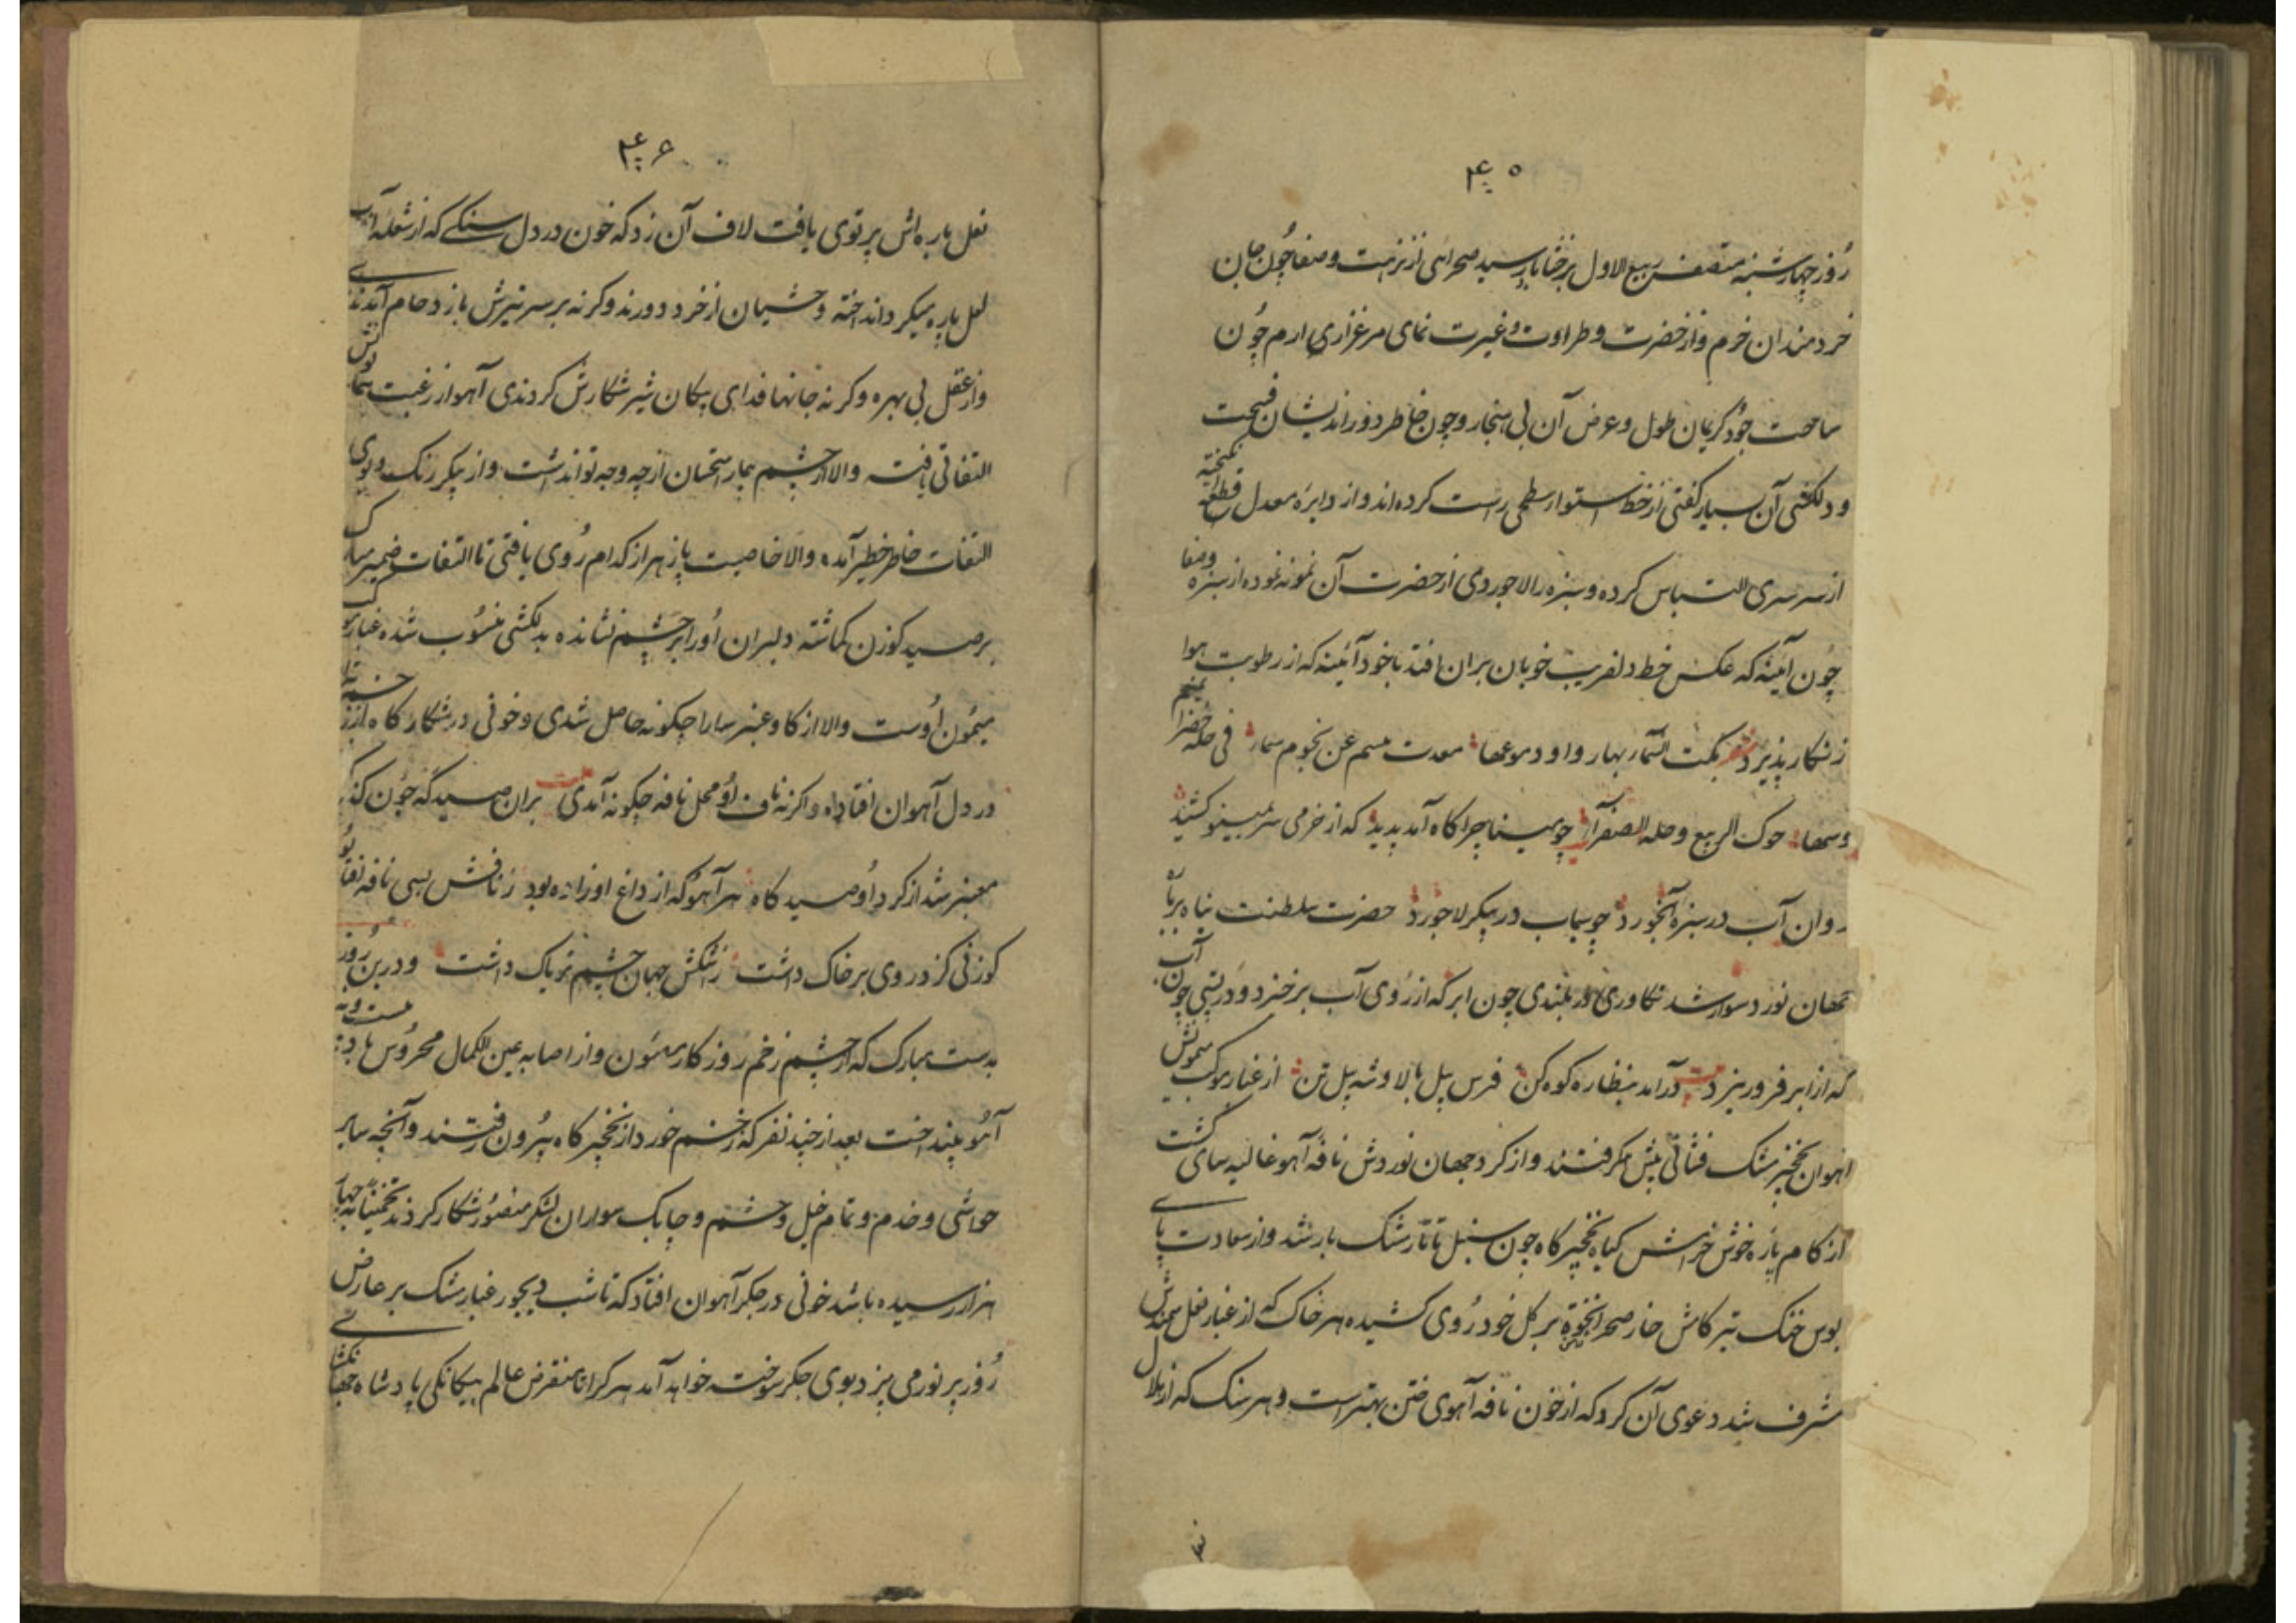 ۴۰۵
روز چهارشنبه منتصف ربیع الاول رسید صحرائی از نزهت و صفا چون جان
خردمندان خرم و از خضرت و طراوت و غیرت نمای مرغزاری ارم چون
ساحت جود کریمان طول و عرض آن بی هنجار و چون خاطر دوراندیشان فسحت
و دلکشی آن بسیار کفتی از خط استوا سطحی راست کرده اند و از دایره معدل قطعه
از سرسری التباس کرده و سبزه را لاجوردی از حضرت آن نمونه نموده از سبزه و صفا
چون آئینه که عکس خط دلفریب خوبان بران افتد با خود آئینه که از رطوبت هوا
زنکار پذیرد بکت السماء بها رواود موعها فی حله خضرا
حوک الربیع و حله الصفرآ چو مینا چراکاه آمد پدید که از خرمی سر بمینو کشید
روان آب در سبزه آبخورد چو سیماب در پیکر لاجورد حضرت سلطنت پناه بر
جهان نورد سوار شد تکاوری در بلندی چون ابر که از روی آب برخیزد و در پستی چون آب
که از ابر فرو ریزد درآمد بنظاره کوه کن فرس پیل بالا و شه پیل تن از غبار موکب
آهوان مشک فشانی پیش گرفتند و از کرد جهان نوردش نافه آهو غالیه سای کشت
از کام یازه خوش خرامش کیاه نخچیر کاه چون سنبل تاتار مشک بار شد و از سعادت پای
بوس خنک تیر کامش خار صحرا بر کل خود روی کشیده هر خاک که از غبار نعل سمندش
مشرف شد دعوی آن کرد که از خون نافه آهوی ختن بهتر است و هر سنک که از هلال
۴۰۶
نعل باره اش پرتوی یافت لاف آن زد که خون در دل سنکی که از شعله
لعل پاره میکرد انداخته وحشیان از خرد دورند و کرنه بر سر تیرش باز دحام آمدندی
و از عقل بی بهره و کرنه جانها فدای پیکان شیر شکارش کردندی آهو از رغبت
التفاتی یافته والا از چشم بیمار استحسان از چه وجه تواند داشت و از پیکر رنک و بوی
التفات خاطر خطیر آمده والا خاصیت پازهر از کدام روی یافتی تا التفات ضمیر
بر صید کوزن کماشته دلبران او را بر چشم نشانده بدلکشی منسوب شده غبار
میمون اوست والا از کاو عنبر سارا چکونه حاصل شدی و خونی در شکار کاه از
در دل آهوان افتاده و اکرنه ناف او محل نافه چکونه آمدی بران صید که چون
معنبر شد از کرد او صید کاه هر آهو که از داغ او زاده بود ز نافش بسی نافه
کوزنی کز دروی بر خاک داشت جهان چشم تریاک داشت و درین روز
بدست مبارک که از چشم زخم روزکار مأمون و از اصابه عین الکمال محروس باد
آهو بینداخت بعد از چند نفر که زخم خورد از نخچیر کاه بیرون رفتند و آنچه سایر
حواشی و خدم و تمام خیل و حشم و چابک سواران لشکر منصور شکار کردند تخمیناً
هزار رسیده باشد خونی در جکر آهوان افتاد که تا شب دیجور غبار مشک بر عارض
روز پر نور می بیزد بوی جکر سوخته خواهد آمد هر کرا تا منقرض عالم پادشاه